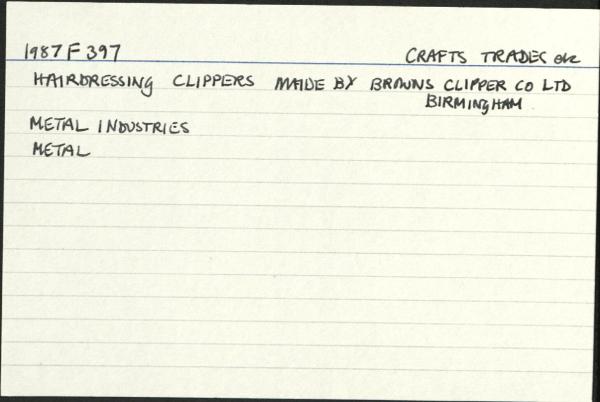 1987 F 397 CRAFTS TRADES etc
HAIRDRESSING CLIPPERS MADE BY BROWNS CLIPPER CO LTD
BIRMINGHAM
METAL INDUSTRIES
METAL